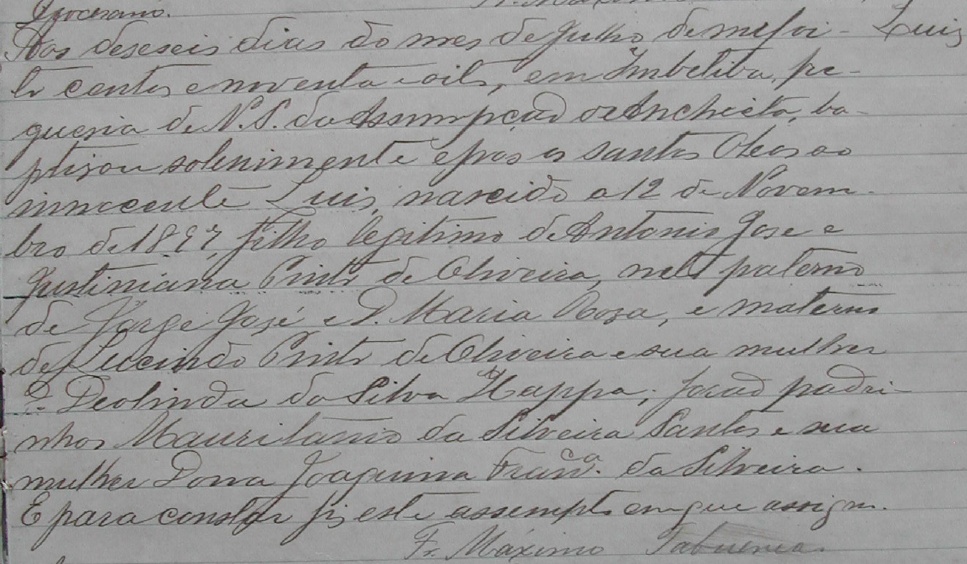 Diocesano.
Aos deseseis dias do mes de Julho de mil oi- Luis
to centos e noventa e oito, em Imbetiba, fre-
guesia de N. S. da Assumpção de Anchieta, ba-
ptizou solenimente e pos os santos Oleos ao
innocente Luis, nascido a 12 de Novem-
bro de 1897, filho legitimo de Antonio Jose e
Justiniana Pinto de Oliveira, neto paterno
de Jorge José e D. Maria Rosa, e materno
de Lucindo Pinto de Oliveira e sua mulher
D. Deolinda da Silva Happa; forão padri-
nhos Mauritanio da Silveira Santos e sua
mulher Dona Joaquina Franca. da Silveira.
E para constar fiz este assempto em que assigno.
Fr. Máximo Tabuenca.